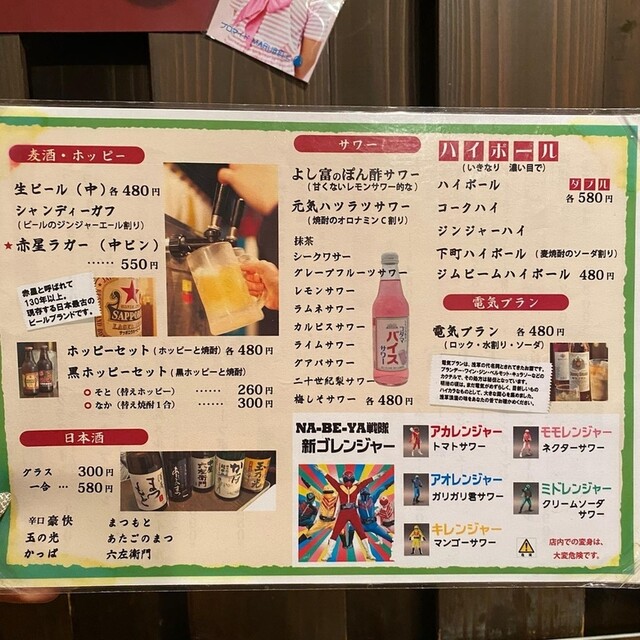 ブロマイド MARUBELL
麦酒・ホッピー
生ビール（中）各480円
シャンディーガフ
（ビールのジンジャーエール割り）
★赤星ラガー（中ビン）
…… 550円
赤星と呼ばれて
130年以上。
現存する日本最古の
ビールブランドです。
SAPPORO
LAGER
ホッピーセット（ホッピーと焼酎）各480円
黒ホッピーセット（黒ホッピーと焼酎）
◎そと（替えホッピー） 260円
◎なか（替え焼酎1合）…… 300円
日本酒
グラス 300円
一合 … 580円
辛口 豪快 まつもと
玉の光 あたごのまつ
かっぱ 六左衛門
サワー
よし富のぽん酢サワー
（甘くないレモンサワー的な）
元気ハツラツサワー
（焼酎のオロナミンC割り）
抹茶
シークワサー
グレープフルーツサワー
レモンサワー
ラムネサワー
カルピスサワー
ライムサワー
グアバサワー
二十世紀梨サワー
梅しそサワー 各480円
バイス
サワー
ハイボール
（いきなり 濃い目で）
ハイボール ダブル
各580円
コークハイ
ジンジャーハイ
下町ハイボール（麦焼酎のソーダ割り）
ジムビームハイボール 480円
電気ブラン
電気ブラン 各480円
（ロック・水割り・ソーダ）
NA-BE-YA戦隊
新ゴレンジャー
アカレンジャー
トマトサワー
モモレンジャー
ネクターサワー
アオレンジャー
ガリガリ君サワー
ミドレンジャー
クリームソーダ
サワー
キレンジャー
マンゴーサワー
店内での変身は、
大変危険です。